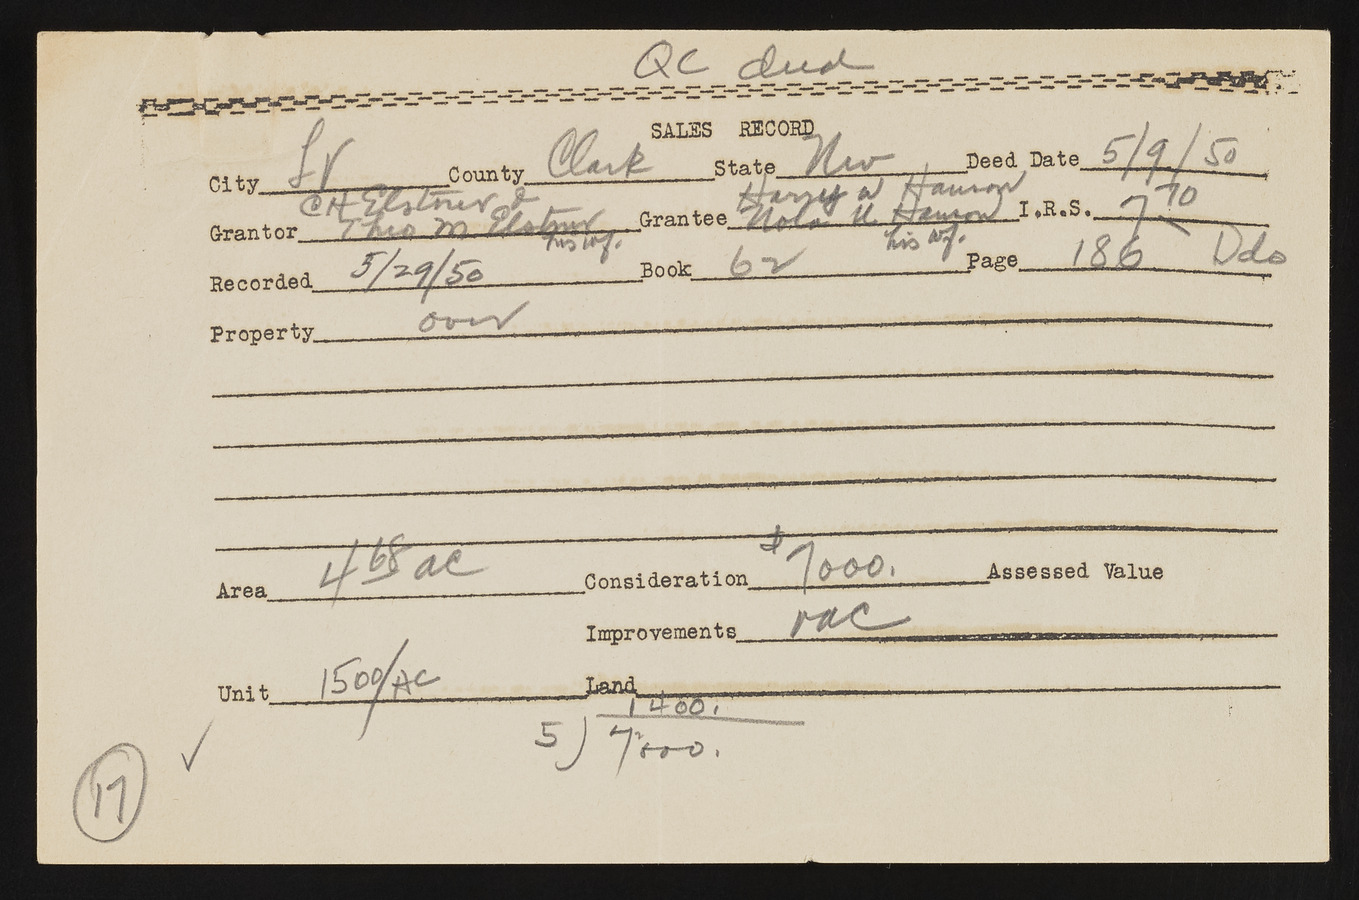 QC deed
SALES RECORD
City LV County Clark State Nev Deed Date 5/9/50
Grantor C H Elstner & Theo M Elstner his wf. Grantee Harvey W Hanson Nola H. Hanson his wf. I.R.S. 7 70
Recorded 5/29/50 Book 62 Page 186 Dds
Property over
Area 4 68 ac Consideration $7000. Assessed Value
Improvements vac
Unit 1500/AC Land
1400.
5) 7000.
✓
17